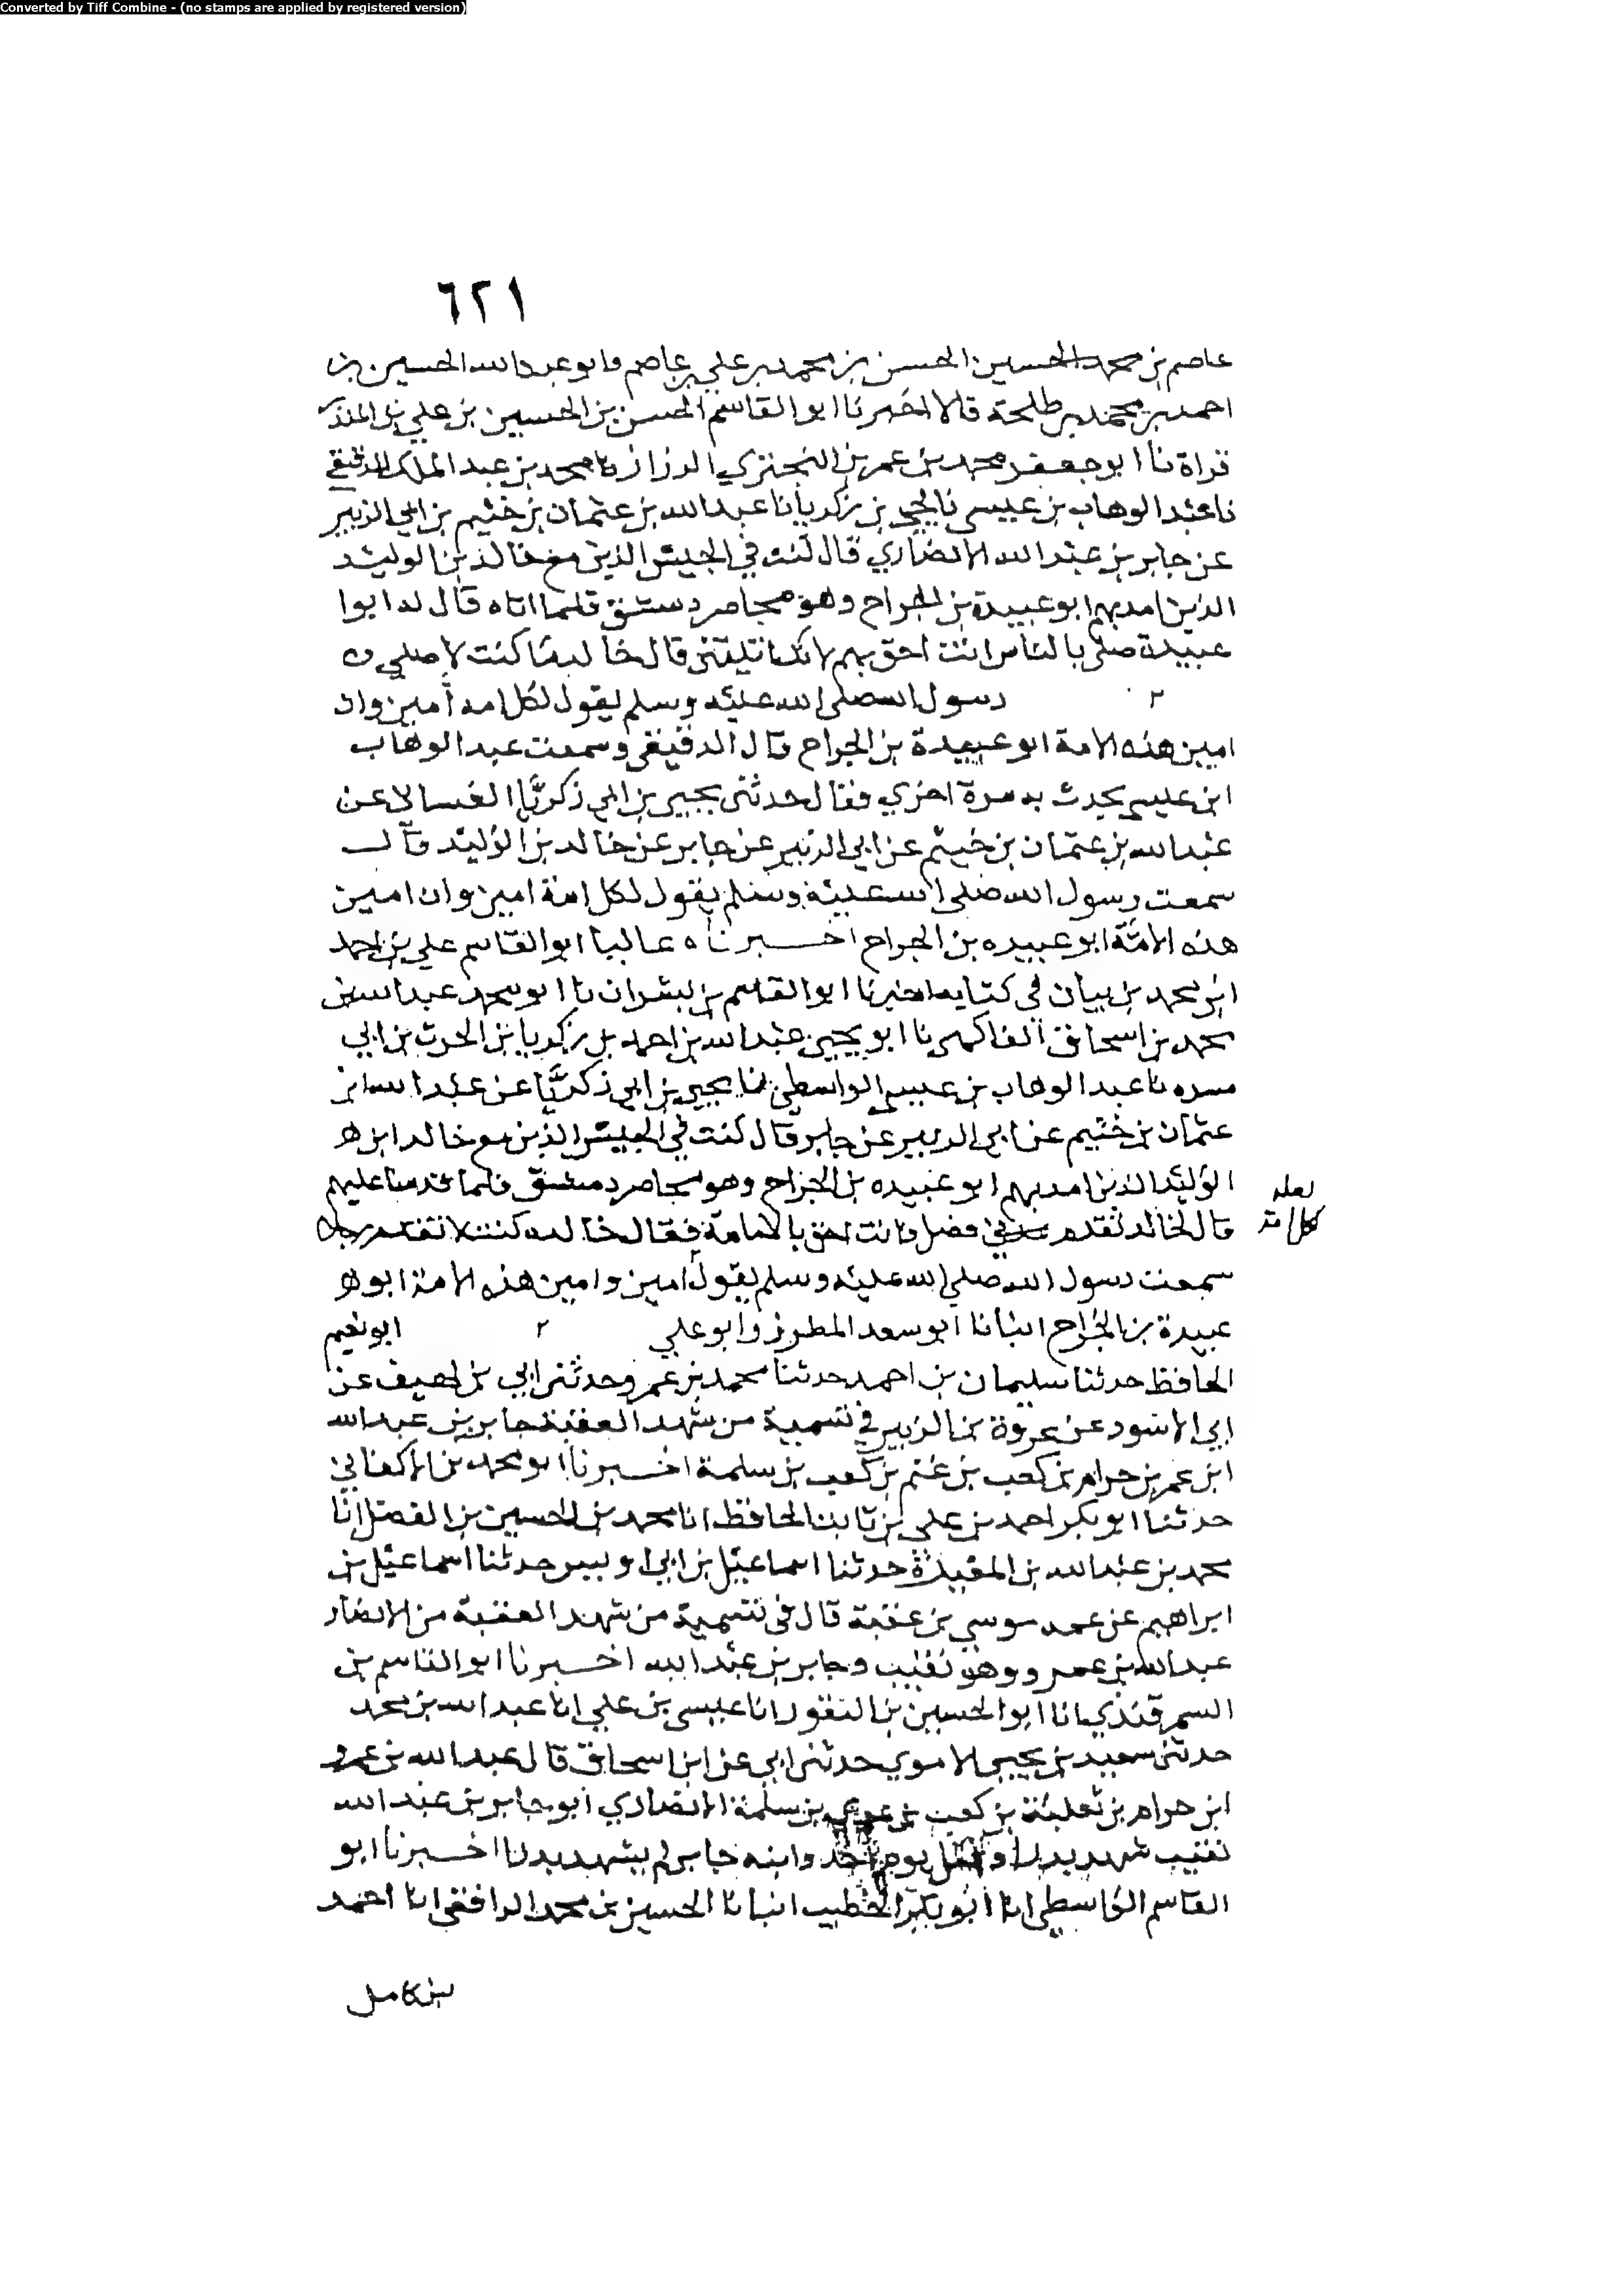 Converted by Tiff Combine - (no stamps are applied by registered version)
٦٢١
عاصم بن محمد الحسين الحسن بن محمد بن علي بن عاصم وابو عبدالله الحسين بن
احمد بن محمد بن طلحة قالا اخبرنا ابوا القاسم الحسن بن الحسين بن علي بن المنذر
قراة نا ابو جعفر محمد بن عمر بن البختري الرزاز نا محمد بن عبد الملك الدقيقي
نا عبد الوهاب بن عيسى نا يحيى بن زكريا نا عبدالله بن عثمان بن خثيم بن ابي الزبير
عن جابر بن عبد الله الانصاري قال كنت في الجيش الذين مع خالد بن الوليد
الذين امد بهم ابو عبيدة بن الجراح وهو محاصر دمشق فلما اتاه قال له ابوا
عبيدة صلى بالناس انت احق بهم لانك قال خالد ما كنت لاصلي
رسول الله صلى الله عليه وسلم يقول لكل امه أمين وان
امين هذه الامة ابو عبيدة بن الجراح قال الدقيقي وسمعت عبد الوهاب
ابن عيسى يحدث به مرة اخري فقال حدثني يحيى بن ابي زكريا الغساني عن
عبد الله بن عثمان بن خيثم عن ابي الزبير عن جابر عن خالد بن الوليد قال
سمعت رسول الله صلى الله عليه وسلم يقول لكل امة امين وان امين
هذه الامة ابو عبيده بن الجراح اخبرناه عاليا ابوا القاسم علي بن احمد
ابن محمد بن بيان في كتابه اخبرنا ابوا القاسم بن بشران نا ابو محمد عبد الله بن
محمد بن اسحاق الفاكهي نا ابو يحيى عبد الله بن احمد بن زكريا بن الحرث بن ابي
مسره نا عبد الوهاب بن عيسى الواسطي نا يحيى بن ابي زكريا عن عبد الله ابن
عثمان بن خثيم عن ابي الزبير عن جابر قال كنت في الجيش الذين مع خالد ابن
الوليد الذين امد بهم ابو عبيده بن الجراح وهو محاصر دمشق فلما قدمنا عليهم
لعله
قال لخالد تقدم فصل فانت احق بالامامة فقال خالد ما كنت لاتقدم رجلا
لكل امة
سمعت رسول الله صلى الله عليه وسلم يقول امين وامين هذه الامة ابو
عبيدة بن الجراح انبانا ابو سعد المطرز وابو علي ابو نعيم
الحافظ حدثنا سليمان بن احمد حدثنا محمد بن عمرو حدثني ابي بن لهيف عن
ابي الاسود عن عروة بن الزبير في تسمية من شهد العقبة جابر بن عبد الله
ابن عمر بن حرام بن كعب بن غنم بن كعب بن سلمة اخبرنا ابو محمد بن الاكفاني
حدثنا ابو بكر احمد بن علي بن ثابت الحافظ انا محمد بن الحسين بن الفضل انا
محمد بن عبد الله بن حدثنا اسماعيل بن ابي اويس حدثنا اسماعيل بن
ابراهيم عن عمه موسى بن عقبة قال في تسمية من شهد العقبة من الانصار
عبد الله بن عمرو وهو نقيب وجابر بن عبد الله اخبرنا ابوا القاسم بن
السمرقندي انا ابوا الحسين بن النقور انا عيسى بن علي انا عبد الله بن محمد
حدثني سعيد بن يحيى الاموي حدثني ابي عن ابن اسحاق قال عبد الله بن عمرو
ابن حرام بن ثعلبة بن كعب بن سلمة الانصاري ابو جابر بن عبد الله
نقيب شهد بدرا وقتل يوم احد وابنه جابر لم يشهد بدرا اخبرنا ابو
القاسم الواسطي انا ابو بكر الخطيب انبانا الحسين بن محمد الرافقي انا احمد
بن كامل